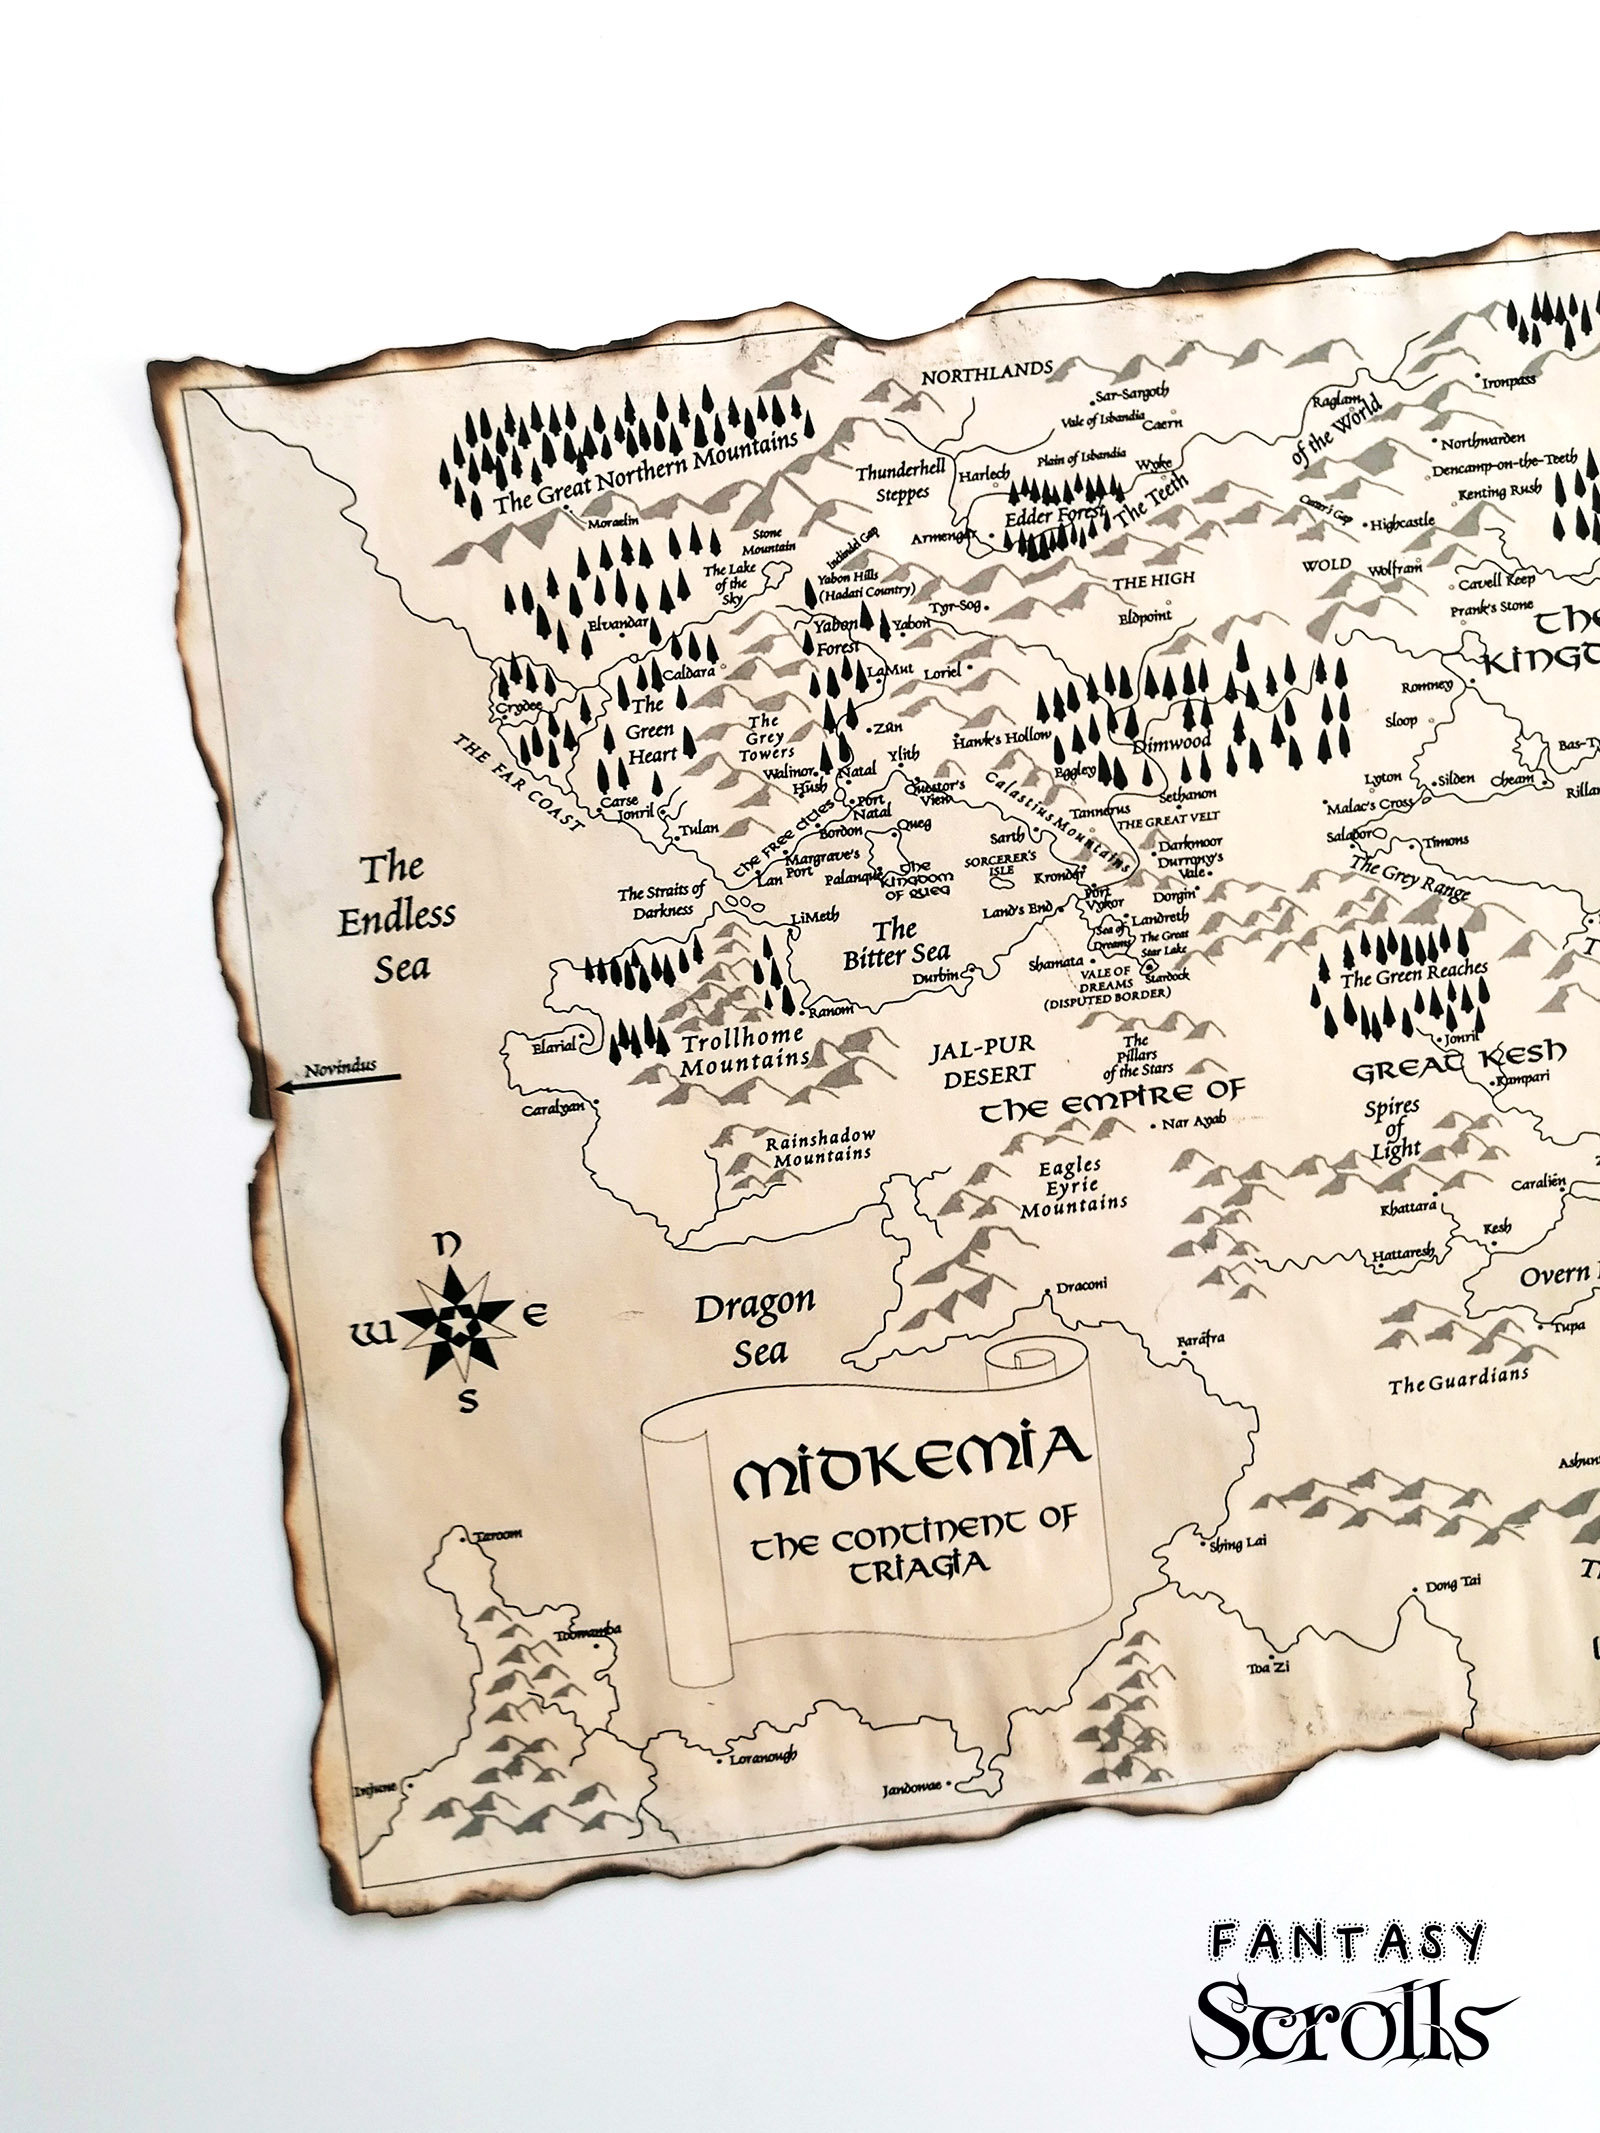 NORTHLANDS
Sar-Sargoth
Vale of Isbandia
Caern
Raglam
of the World
Ironpass
The Great Northern Mountains
Moraelin
Thunderhell
Steppes
Harlech
Plain of Isbandia
Wyke
Edder Forest
The Teeth
Armengar
Northwarden
Dencamp-on-the-Teeth
Kenting Rush
Highcastle
Stone
Mountain
The Lake
of the
Sky
Inclindel Gap
Yabon Hills
(Hadati Country)
Tyr-Sog
THE HIGH
WOLD
Wolfram
Cavell Keep
Prank's Stone
Eldpoint
Elvandar
Yabon
Forest
Yabon
Caldara
LaMut
Loriel
Romney
Sloop
Crydee
The
Green
Heart
The
Grey
Towers
Zun
Ylith
Hawk's Hollow
Dimwood
Eggley
THE FAR COAST
Walinor
Hush
Natal
Port
Natal
Questor's
View
Calastius Mountains
Sethanon
Tannerus
THE GREAT VELT
Lyton
Silden
Cheam
Malac's Cross
Salador
Timons
Carse
Jonril
Tulan
The Free Cities
Bordon
Queg
Margrave's
Port
Lan
Palanque
The
Kingdom
of Queg
Sarth
SORCERER'S
ISLE
Krondor
Darkmoor
Durrony's
Vale
Dorgin
The Grey Range
The
Endless
Sea
The Straits of
Darkness
LiMeth
The
Bitter Sea
Land's End
Port
Vykor
Landreth
Sea of
Dreams
The Great
Star Lake
Shamata
Stardock
VALE OF
DREAMS
(DISPUTED BORDER)
Durbin
Ranom
The Green Reaches
Jonril
Trollhome
Mountains
Elarial
Caralyan
Novindus
JAL-PUR
DESERT
The
Pillars
of the Stars
THE EMPIRE OF
GREAT KESH
Kampari
Nar Ayab
Spires
of
Light
Rainshadow
Mountains
Eagles
Eyrie
Mountains
Caralién
Khattara
Kesh
Hattaresh
Overn
N
W
E
S
Dragon
Sea
Draconi
Faráfra
Tupa
The Guardians
MIDKEMIA
THE CONTINENT OF
TRIAGIA
Taroom
Toowamba
Shing Lai
Dong Tai
Tba Zi
Injune
Loranough
Jandowae
FANTASY
Scrolls